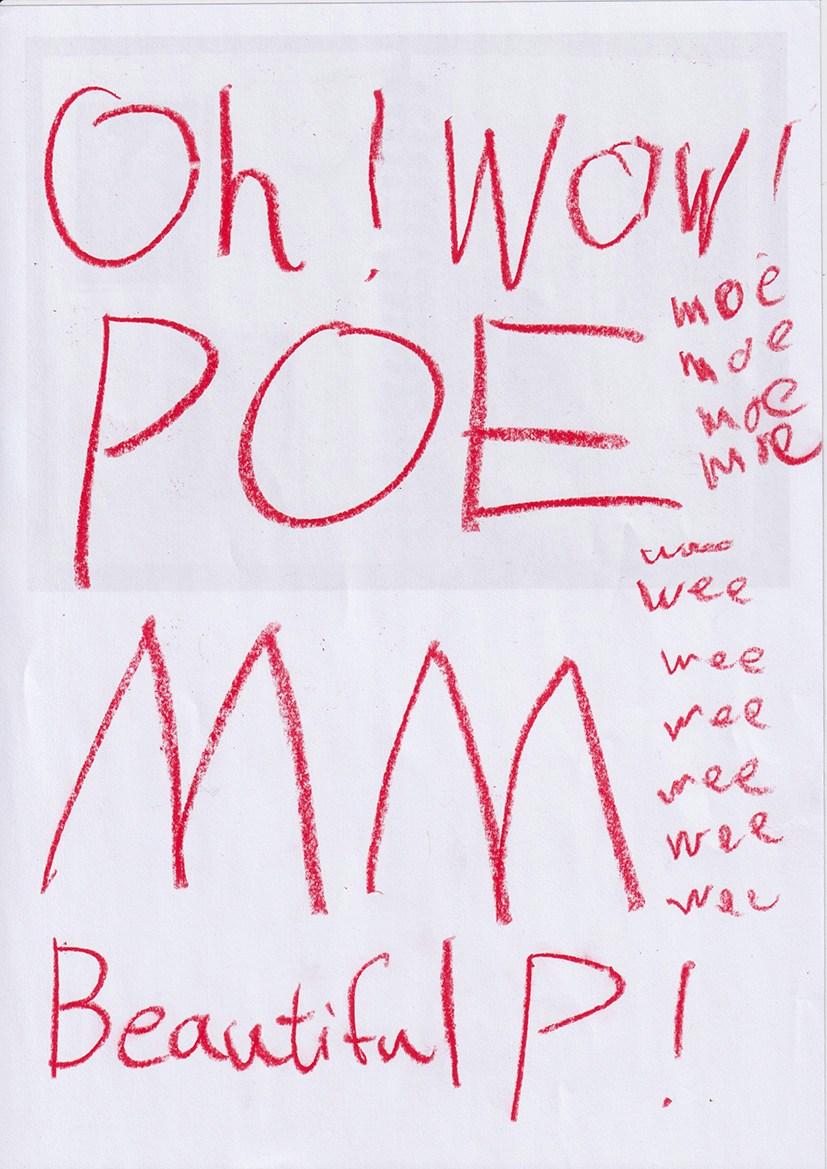 Oh! WOW!
POE
moe
moe
moe
moe
wee
wee
wee
wee
wee
wee
MM
Beautiful P!